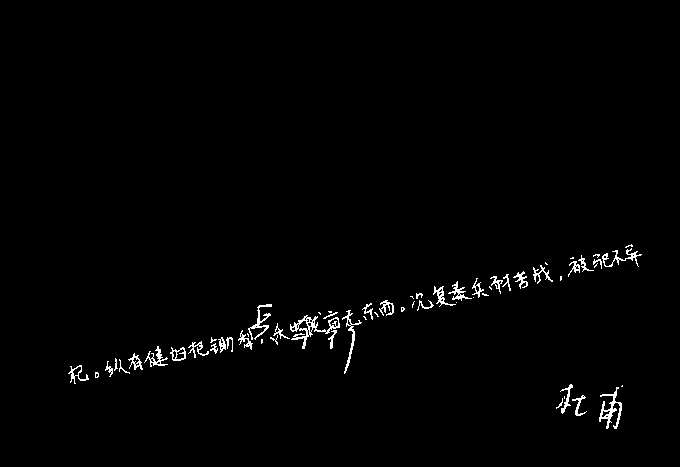 杞。纵有健妇把锄犁,禾生陇亩无东西。况复秦兵耐苦战,被驱不异
杜甫